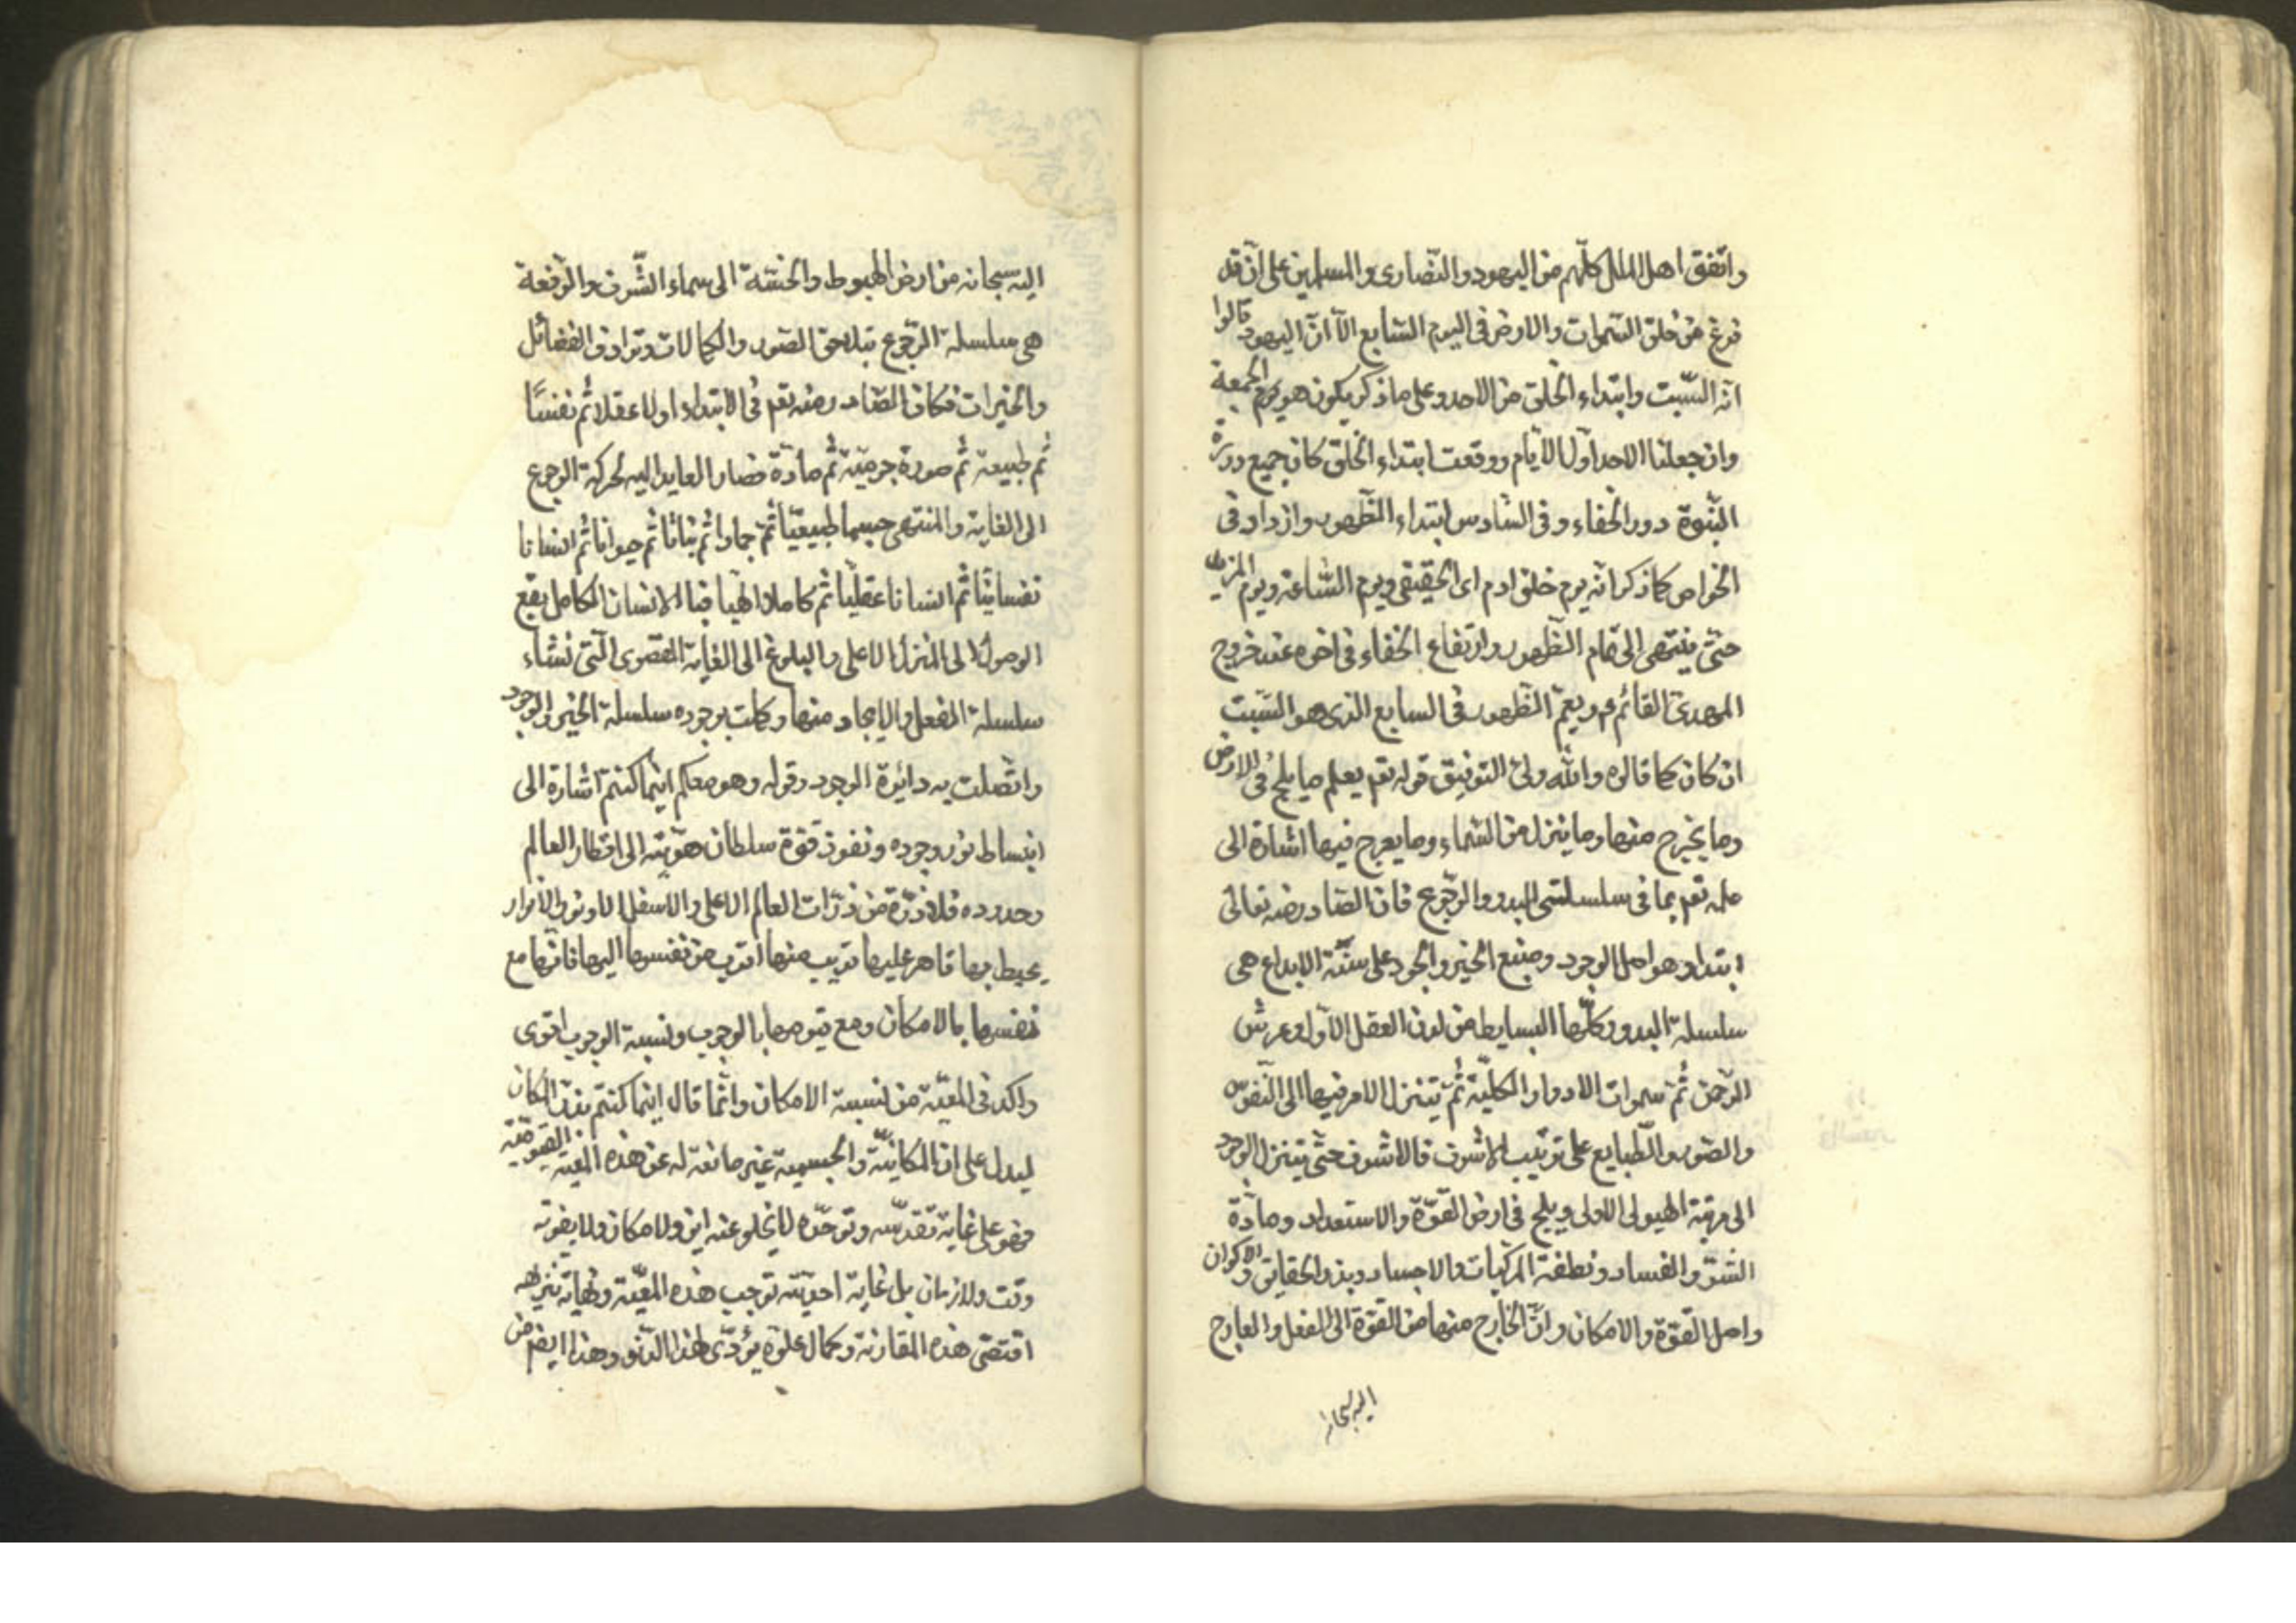 واتفق اهل الملل كلّهم من اليهود والنصارى والمسلمين على انّه قد
فرغ من خلق السموات والارض فى اليوم السّابع الّا انّ اليهود قالوا
انه السّبت وابتداء الخلق من الاحد وعلى ما ذكر يكون هو يوم الجمعة
وان جعلنا الاحد اول الايام ووقعت ابتداء الخلق كان جميع دورة
النبّوة دور الخفاء وفى السّادس ابتداء الظّهور وازداد فى
الخواص كما ذكر انّه يوم خلق ادم اى الحقيقى ويوم السّاعة ويوم المزيد
حتّى ينتهى الى تمام الظّهور وارتفاع الخفاء فى اخره عند خروج
المهدىّ القائم ع ويعمّ الظّهور فى السابع الذى هو السّبت
ان كان كما قالوه والله ولىّ التوفيق قوله تعم يعلم ما يلج فى الارض
وما يخرج منها وما ينزل من السّماء وما يعرج فيها اشارة الى
علمه تعم بما فى سلسلتى البدو والرّجوع فان الصّادر منه تعالى
ابتداء وهو اصل الوجود ومنبع الخير والجود على سنّة الابداع هى
سلسلة البدو وكلّها البسايط من لدن العقل الاوّل وعرش
الرّحمن ثم سموات الادوار الكليّة ثمّ يتنزل الامر فيها الى النّفوس
والصّور والطّبايع على ترتيب الاشرف فالاشرف حتّى يتنزل الوجود
الى مرتبة الهيولى الاولى ويلج فى ارض القوّة والاستعداد ومادّة
الشوق والفساد ونطفة المركبات والاجساد وبذر الحقايق والاكوان
واصل القوّة والامكان وانّ الخارج منها من القوّة الى الفعل والعارج
اليه سبحانه
اليه سبحانه من ارض الهبوط والخسّة الى سماء الشّرف والرّفعة
هى سلسلة الرّجوع بتلاحق الصّور والكمالات وترادف الفضائل
والخيرات فكان الصّادر منه تعم فى الابتداء اولا عقلا ثم نفسًا
ثم طبيعة ثم صورة جرميّة ثم مادّة فصار العايد اليه لحركة الرجوع
الى الغاية والمنتهى جسما طبيعيّا ثمّ جمادا ثم نباتا ثم حيوانا ثم انسانا
نفسانيّا ثم انسانا عقليّا ثم كاملا الهيا فبالانسان الكامل يقع
الوصول الى المنزل الاعلى والبلوغ الى الغاية القصوى الّتى نشاء
سلسلة الفعل والايجاد منها وكملت بوجوده سلسلة الخير والوجود
واتّصلت به دائرة الوجود وقوله وهو معكم اينما كنتم اشارة الى
انبساط نور وجوده ونفوذ قوّة سلطان هويّته الى اقطار العالم
وحدوده فلا ذرّة من ذرّات العالم الاعلى والاسفل الا ونور الانوار
يحيط بها قاهر عليها قريب منها اقرب من نفسها اليها فانّها مع
نفسها بالامكان ومع قيومها بالوجوب ونسبة الوجوب اقوى
واكد فى المعيّة من نسبة الامكان وانّما قال اينما كنتم بذكر المكان
ليدل على ان المكانيّة والجسمية غير مانعة له عن هذه المعيّة القيوميّة
فهو على غاية تقدّسه وتوحّده لا يخلو عنه اين ولا مكان ولا يفوته
وقت ولا زمان بل غاية احديّته توجب هذه المعيّة ونهاية تنزهه
اقتضى هذه المقارنة وكمال علوّه يؤدّى لهذا الدّنو وهذا ايضم من